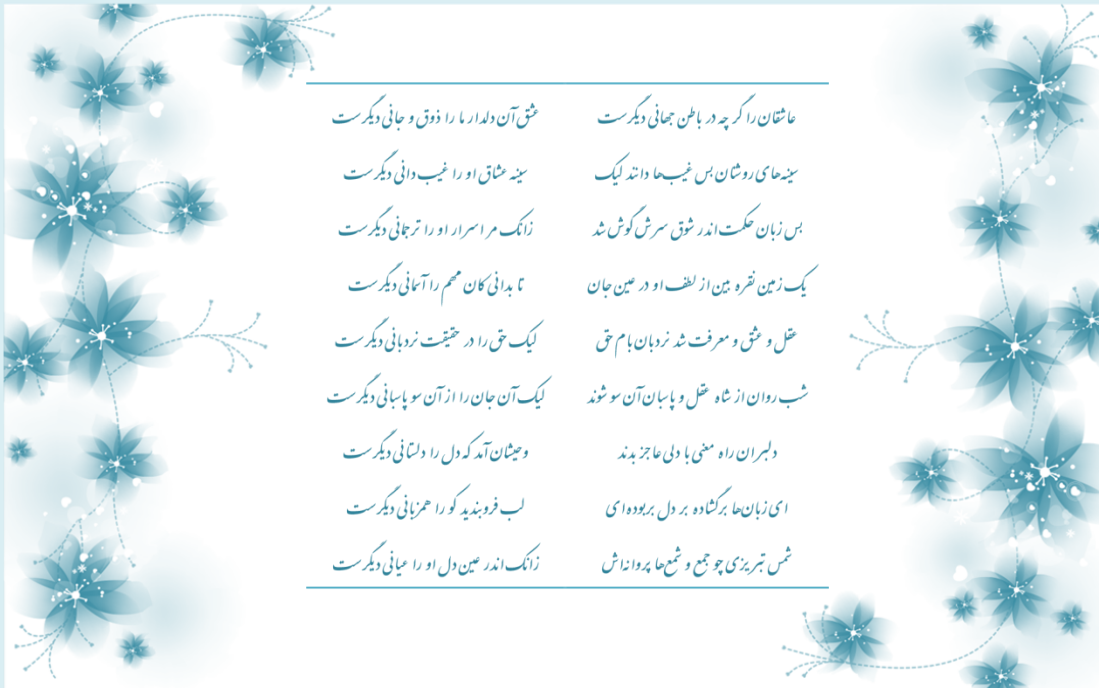 عاشقان را گر چه در باطن جهانی دیگرست عشق آن دلدار ما را ذوق و جانی دیگرست
سینه‌های روشنان بس غیب‌ها دانند لیک سینه عشاق او را غیب دانی دیگرست
بس زبان حکمت اندر شوق سرش گوش شد زانک مر اسرار او را ترجمانی دیگرست
یک زمین نقره بین از لطف او در عین جان تا بدانی کان مهم را آسمانی دیگرست
عقل و عشق و معرفت شد نردبان بام حق لیک حق را در حقیقت نردبانی دیگرست
شب روان از شاه عقل و پاسبان آن سو شوند لیک آن جان را از آن سو پاسبانی دیگرست
دلبران راه معنی با دلی عاجز بدند وحیشان آمد که دل را دلستانی دیگرست
ای زبان‌ها برگشاده بر دل بربوده‌ای لب فروبندید کو را همزبانی دیگرست
شمس تبریزی چو جمع و شمع‌ها پروانه‌اش زانک اندر عین دل او را عیانی دیگرست